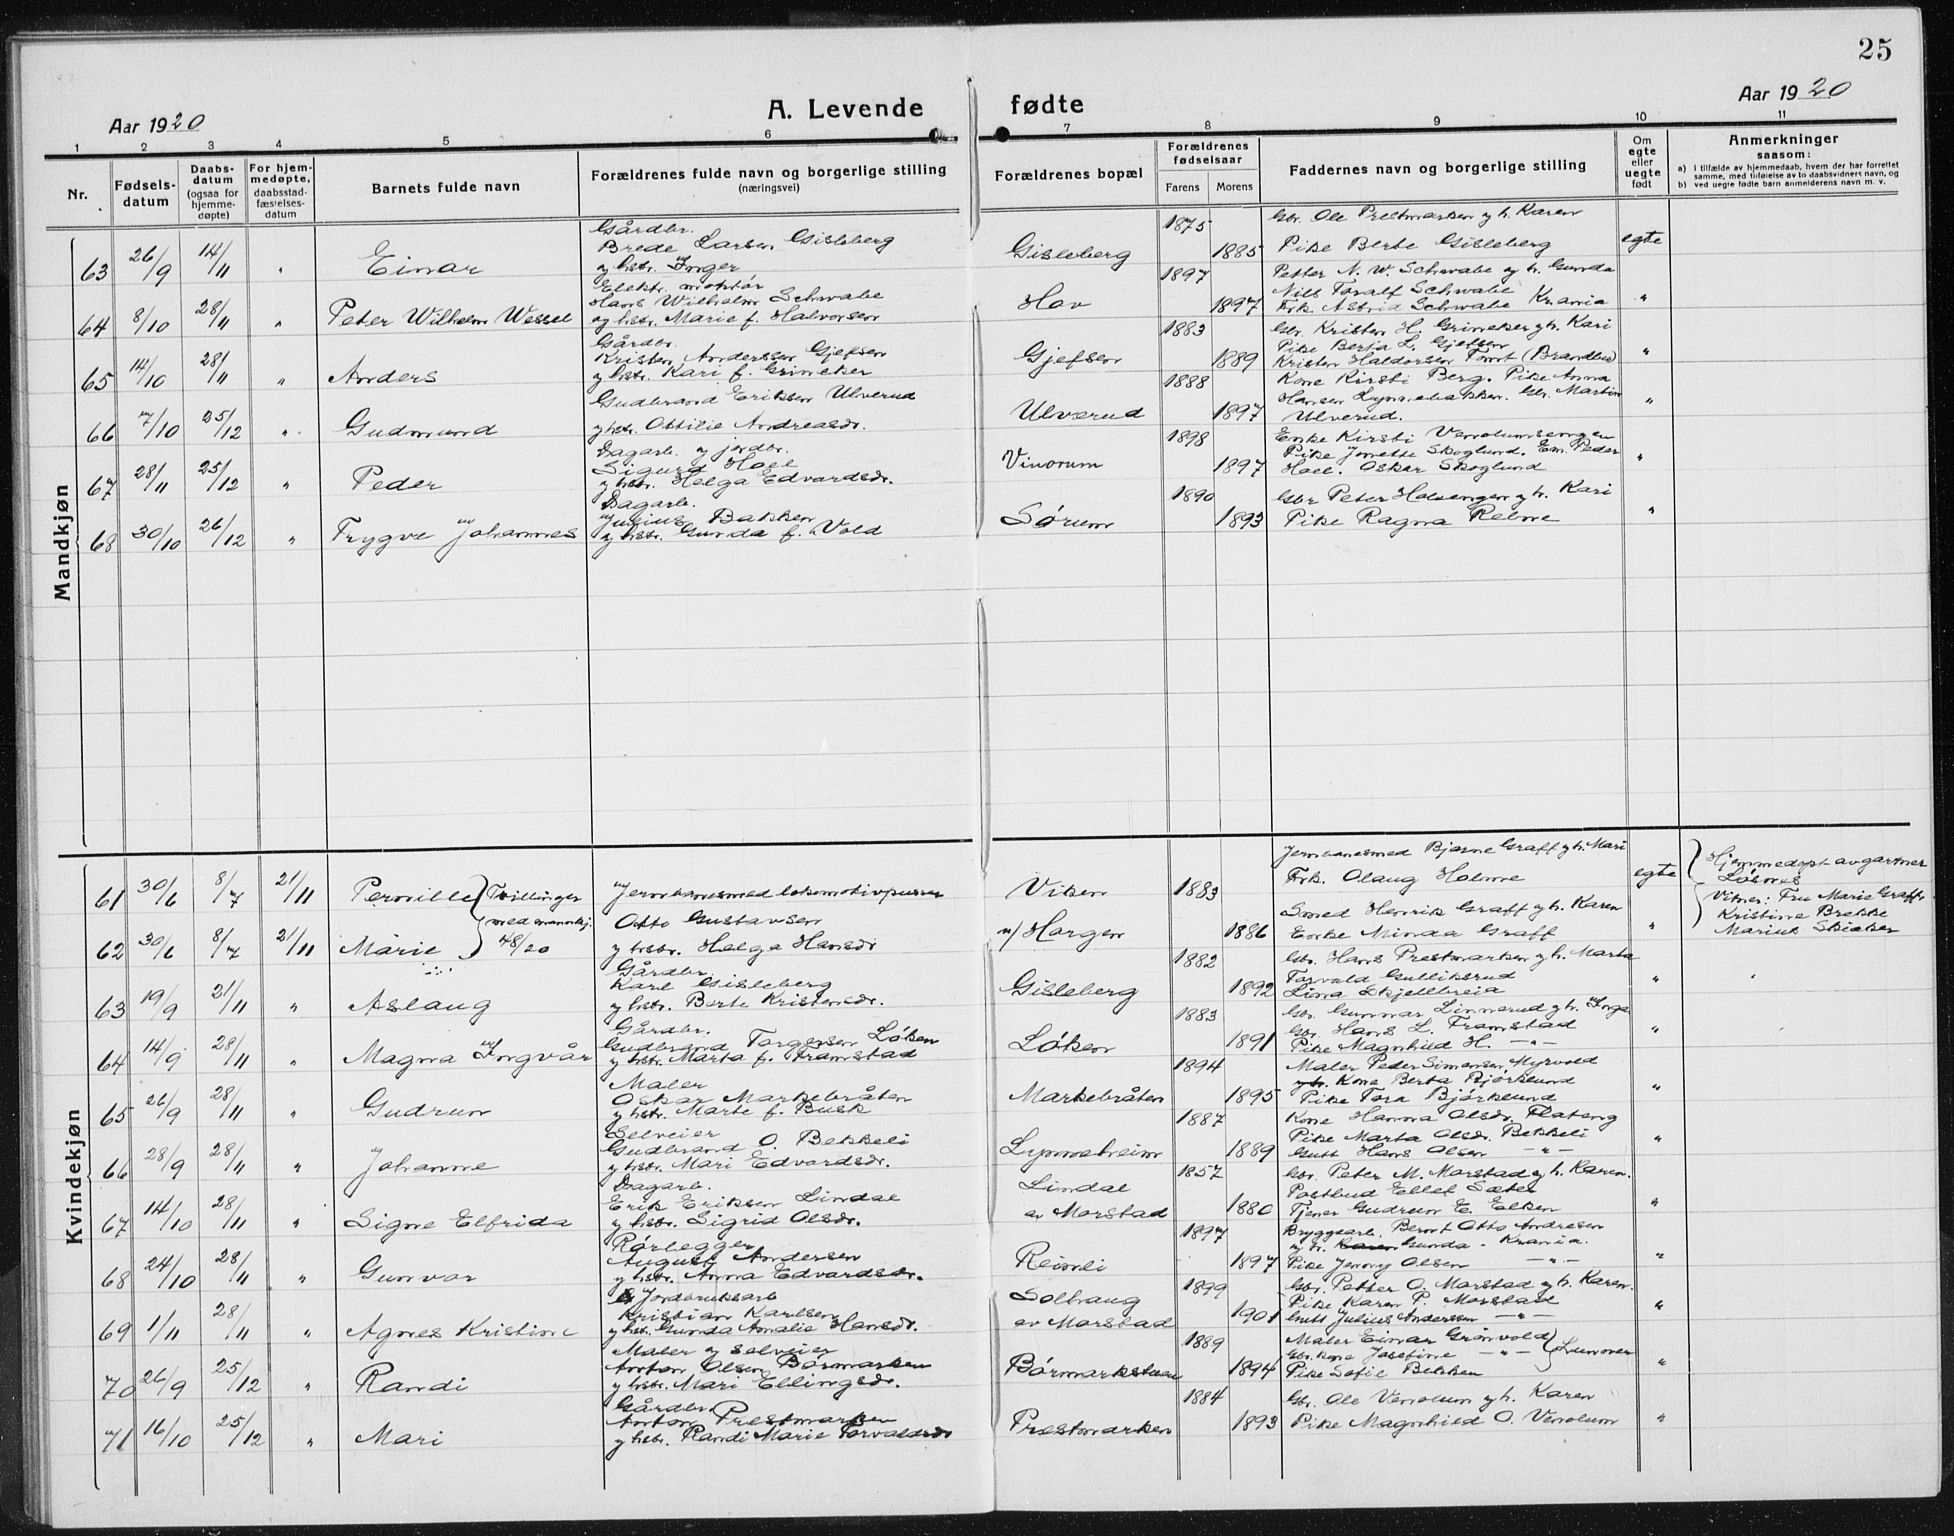 25
Aar 1920
A. Levende fødte
Aar 1920
1 2 3 4 5 6 7 8 9 10 11
Nr.
Fødsels-
datum
Daabs-
datum
(ogsaa for
hjemme-
døpte)
For hjem-
medøpte,
daabsstad-
fæstelses-
datum
Barnets fulde navn
Forældrenes fulde navn og borgerlige stilling
(næringsvei)
Forældrenes bopæl
Forældrenes
fødselsaar
Farens Morens
Faddernes navn og borgerlige stilling
Om
egte
eller
uegte
født
Anmerkninger
saasom:
a) i tilfælde av hjemmedaab, hvem der har forrettet
samme, med tilføielse av to daabsvidners navn, og
b) ved uegte fødte barn anmelderens navn m. v.
Mandkjøn
63 26/9 14/11 " Einar
Gårdbr.
Brede Larsen Gisleberg
og hstr. Inger
Gisleberg 1875 1885
Gbr. Ole Prestmarken og h. Karen
Pike Berte Gisleberg
egte
64 8/10 28/11 " Peter Wilhelm Wessel
Elektr. montør
Hans Wilhelm Schwabe
og hstr. Marie f. Halvorsen
Hov 1897 1897
Petter N. W. Schwabe og h. Gunda
Nils Toralf Schwabe
Frk. Astrid Schwabe Kr.ania
"
65 14/10 28/11 " Anders
Gårdbr.
Kristen Anderssen Gjefsen
og hstr. Kari f. Grineker
Gjefsen 1883 1889
Gbr. Kristen H. Grineker og h. Kari
Pike Berta L. Gjefsen
Kristen Haldorsen Tomt (Brandbu)
"
66 7/10 25/12 " Gudmund
Gudbrand Eriksen Ulverud
og hstr. Ottilie Andreasdr.
Ulverud 1888 1897
Kone Kirsti Berg. Pike Anna
Hansen Lynnebakken. Gbr. Martin
Ulverud.
"
67 28/11 25/12 " Peder
Dagarb. og jordbr.
Sigurd Hoel
og hstr. Helga Edvardsdr.
Vinorum 1898 1897
Enke Kirsti Venolumsengen
Pike Jonette Skoglund. Em. Peder
Hoel. Oskar Skoglund
"
68 30/10 26/12 " Trygve Johannes
Dagarb.
Julius Bakken
og hstr. Gunda f. Vold
Sørum 1890 1893
Gbr Peter Halvengen og h. Kari
Pike Ragna Relne
"
Kvindekjøn
61 30/6 8/7 21/11 Pernille Trillinger
med mannkj.
48/20
Jernbanesmed lokomotivpusser
Otto Gustavsen
Viken 1883
Jernbanesmed Bjarne Graff og h. Mari
Frk. Olaug Holme
egte
Hjemmedøpt av gartner
Løsnes
Vitner: Fru Marie Graff,
Kristine Brekke
Marius Skiaker
62 30/6 8/7 21/11 Marie
og hstr. Helga Hansdr
n/ Horgen 1886
Smed Henrik Graff og h. Karen
Enke Minda Graff
"
63 19/9 21/11 " Aslaug
Gårdbr.
Karl Gisleberg
og hstr. Berte Kristensdr.
Gisleberg 1882 1892
Gbr. Hans Prestmarken og h. Marta
Torvald Gulliksrud
Lina Skjellbreia
"
64 14/9 28/11 " Magna Ingvår
Gårdbr.
Gudbrand Torgersen Løken
og hstr. Marta f. Framstad
Løken 1883 1891
Gbr. Gunnar Linnerud og h. Inga
Gbr. Hans L. Framstad
Pike Magnhild H. — " —
"
65 26/9 28/11 " Gudrun
Maler
Oskar Markebråten
og hstr. Marte f. Busk
Markebråten 1894 1895
Maler Peder Simensen Myrvold
og h. Kone Berta Bjørklund
Pike Tora Bjørklund
"
66 28/9 28/11 " Johanne
Selveier
Gudbrand O. Bekkeli
og hstr. Mari Edvardsdr.
Lynnebeim 1887 1889
Kone Hanna Olsdr. Flateng
Pike Marta Olsdr. Bekkeli
Gutt Hans Olsen — " —
"
67 14/10 28/11 " Signe Elfrida
Dagarb.
Erik Eriksen Lindal
og hstr. Sigrid Olsdr.
Lindal
av Morstad 1857 1880
Gbr. Peter M. Morstad og h. Karen.
Postbud Ellef Sæter
Tjener Gudrun E. Elken
"
68 24/10 28/11 " Gunvor
Rørlegger
August Andersen
og hstr. Anna Edvardsdr.
Reinli 1897 1897
Bryggearb. Bernt Otto Andresen
og h. Karen Gunda - Kr.ania.
Pike Jenny Olsen — " —
"
69 1/11 28/11 " Agnes Kristine
Jordbruksarb
Kristian Karlsen
og hst. Gunda Amalie Hansdr.
Solhaug
av Morstad 1899 1901
Gbr. Petter O. Morstad og h. Karen.
Pike Karen P. Morstad
Gutt Julius Anderssen — " —
"
70 26/9 25/12 " Randi
Maler og selveier
Anton Olsen Børmarken
og hstr. Mari Ellingsdr.
Børmarkstuen 1889 1894
Maler Einar Grønvold
Gbr. kone Josefine — " — Lunner
Pike Sofie Bekken
"
71 16/10 25/12 " Mari
Gårdbr.
Anton Prestmarken
og hstr. Randi Marie Torvaldsdr
Prestmarken 1884 1893
Gbr. Ole Venolum og h. Karen
Pike Magnhild O. Venolum
"